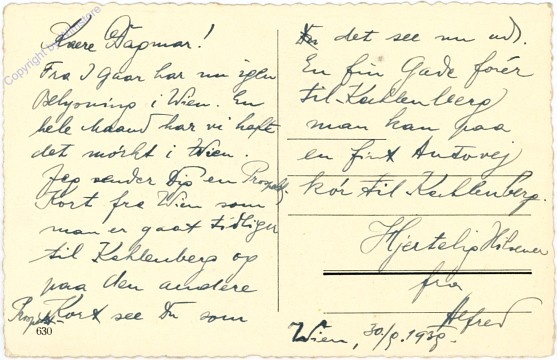 Kære Dagmar!
Fra I Gaar har nu igen
Belysning i Wien. En
hele Maand har vi haft
det mörkt i Wien.
Jeg sender Dig en Prospekt-
Kort fra Wien som
man er gaat tidliger
til Kahlenberg og
paa den andere
Prospekt-Kort see Du som
630
det see nu ud.
En fin Gade fører
til Kahlenberg
man kan paa
en first Autovej
kör til Kahlenberg.
Hjertelig Hilsener
fra
Alfred
Wien, 30/9. 1938
Copyright by oldthing